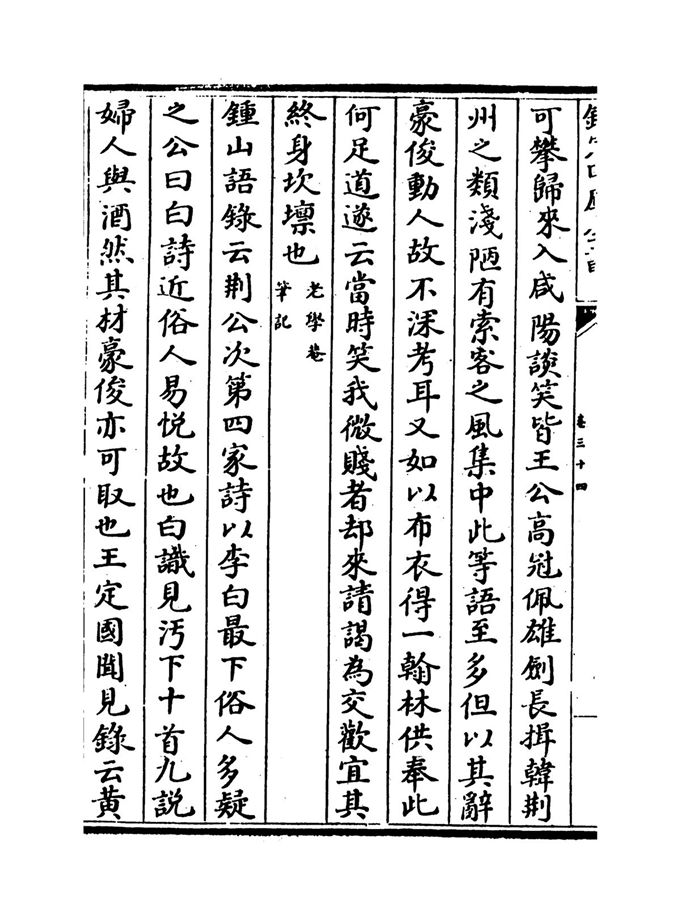 欽定四庫全書
卷三十四
可攀歸來入咸陽談笑皆王公高冠佩雄劍長揖韓荆
州之類淺陋有索客之風集中此等語至多但以其辭
豪俊動人故不深考耳又如以布衣得一翰林供奉此
何足道遂云當時笑我微賤者却來請謁為交歡宜其
終身坎壈也老學菴
筆記
鍾山語錄云荆公次第四家詩以李白最下俗人多疑
之公曰白詩近俗人易悅故也白識見汚下十首九說
婦人與酒然其材豪俊亦可取也王定國聞見錄云黄